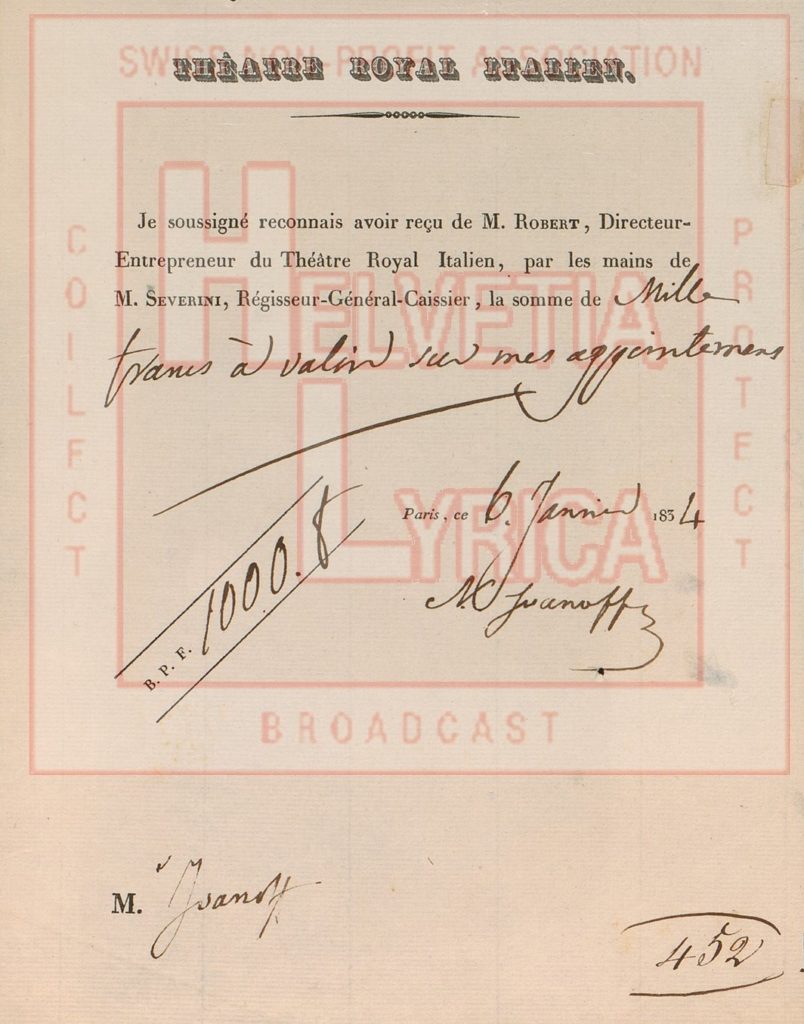 SWISS NON-PROFIT ASSOCIATION
THÉATRE ROYAL ITALIEN.
Je soussigné reconnais avoir reçu de M. ROBERT, Directeur-
Entrepreneur du Théâtre Royal Italien, par les mains de
M. SEVERINI, Régisseur-Général-Caissier, la somme de Mille
francs à valoir sur mes appointemens
Paris, ce 6. Janvier 1834
B. P. F. 1000. f
N. Ivanoff
COLLECT
PROTECT
HELVETIA
LYRICA
BROADCAST
M. Ivanoff
452